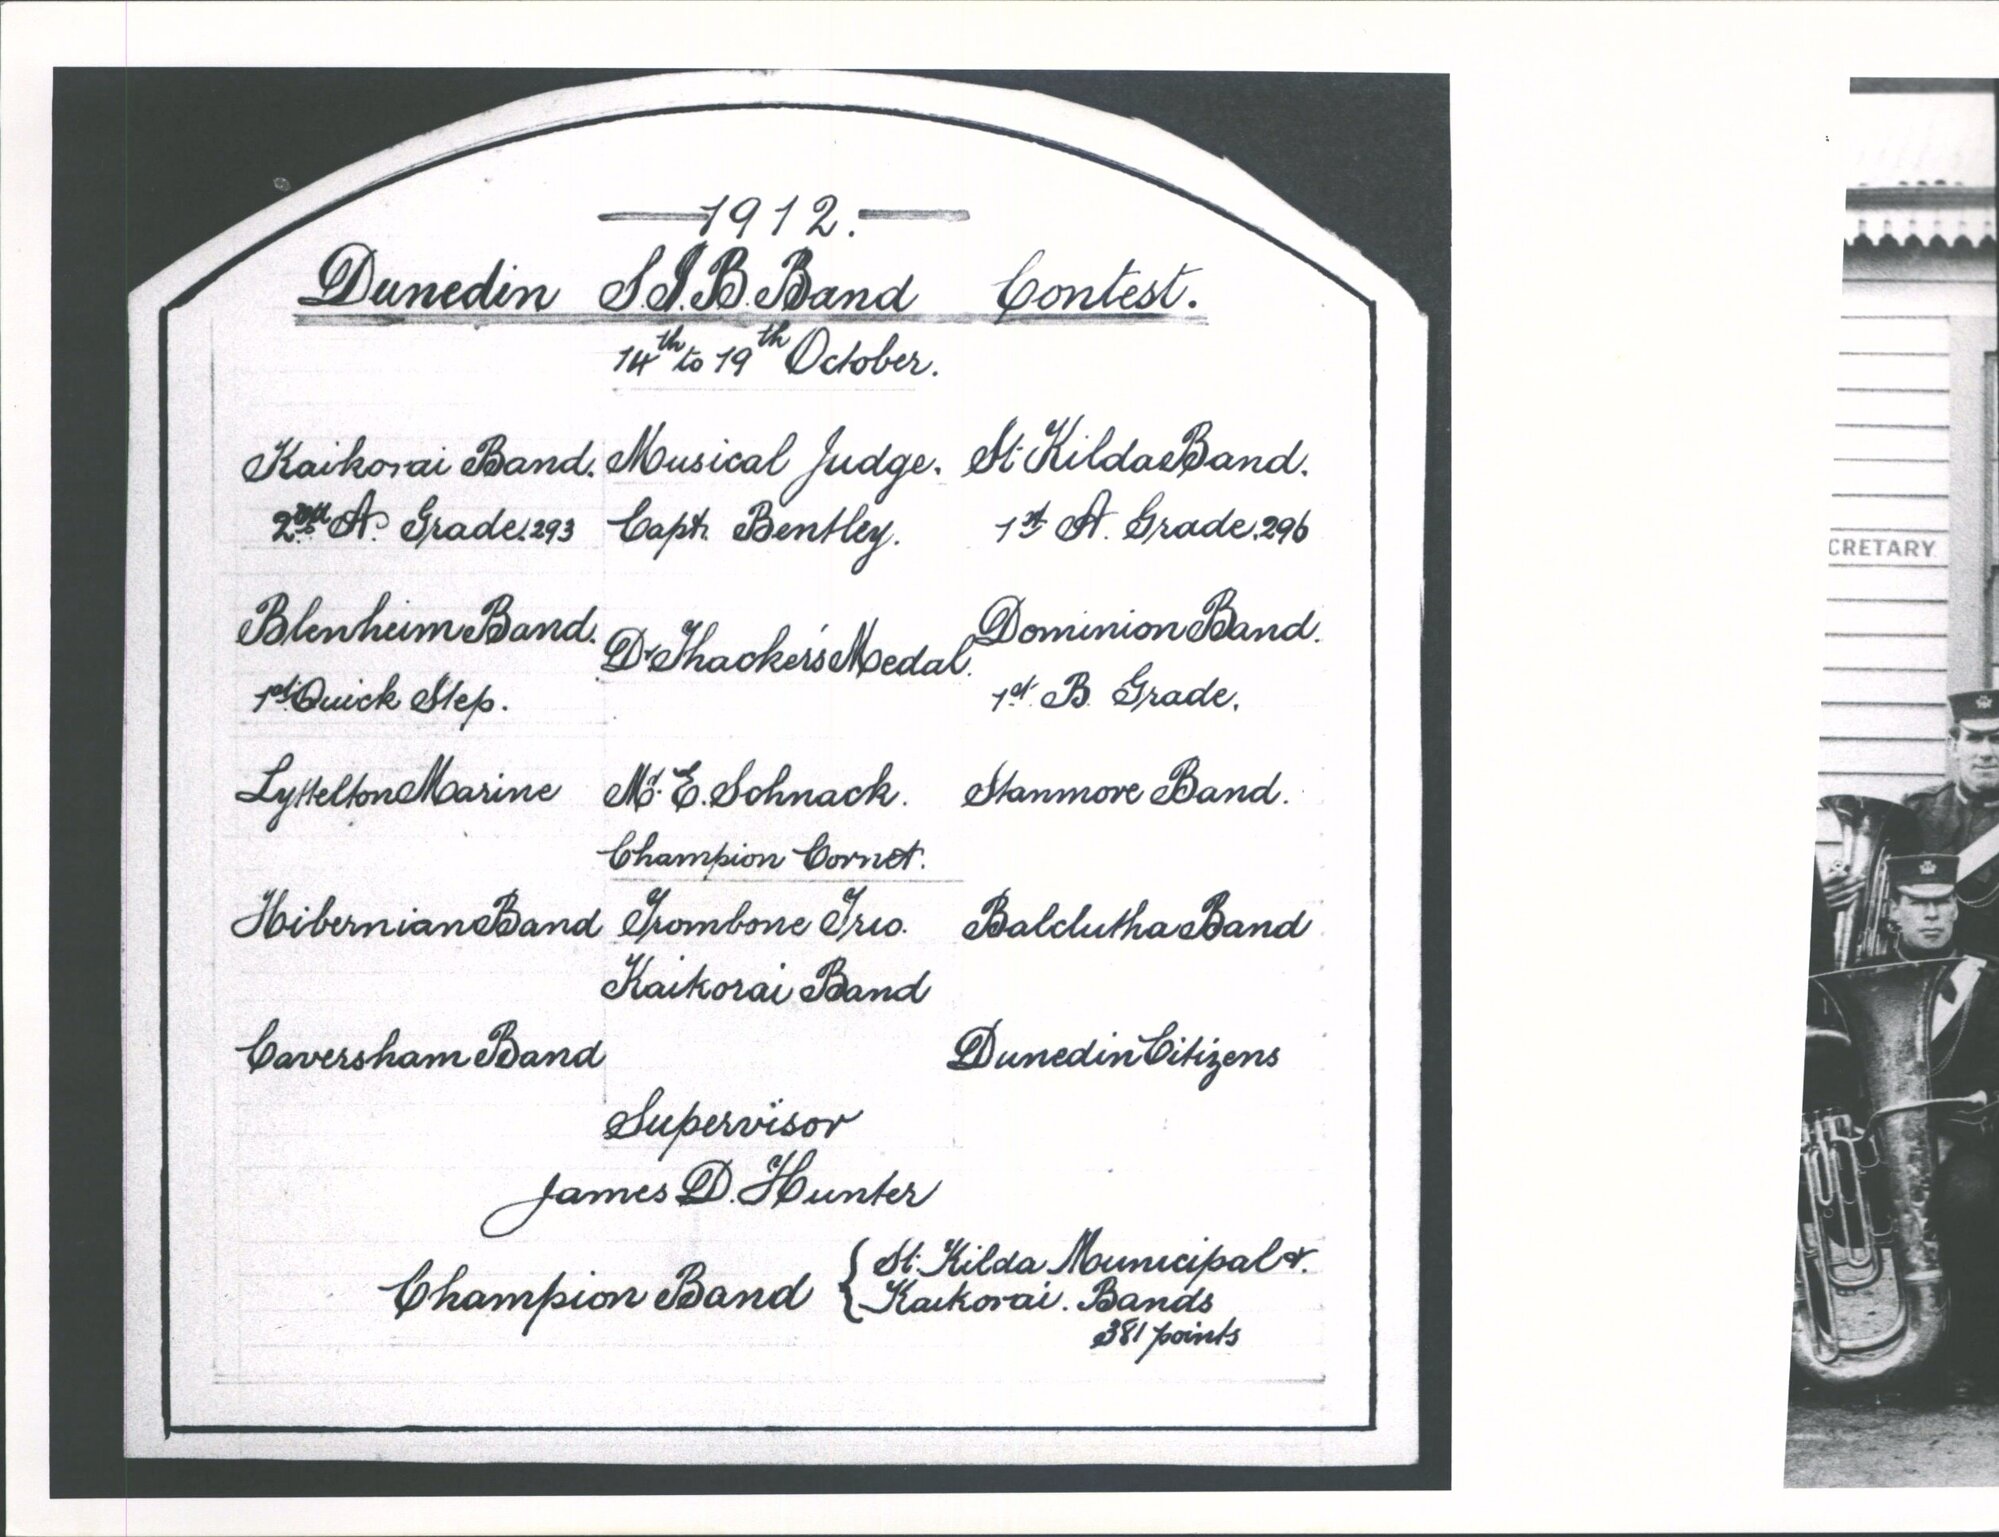 1912.
Dunedin S.I.B. Band Contest.
14th to 19th October.
Kaikorai Band. Musical Judge. St. Kilda Band.
2nd A. Grade. 293 Capt. Bentley. 1st A. Grade. 296
Blenheim Band. Dr Thacker's Medal. Dominion Band.
1st Quick Step. 1st B. Grade.
Lyttelton Marine Mr. E. Schnack. Stanmore Band.
Champion Cornet.
Hibernian Band Trombone Trio. Balclutha Band
Kaikorai Band
Caversham Band Dunedin Citizens
Supervisor
James D. Hunter
Champion Band { St. Kilda Municipal &
Kaikorai. Bands
381 points
CRETARY